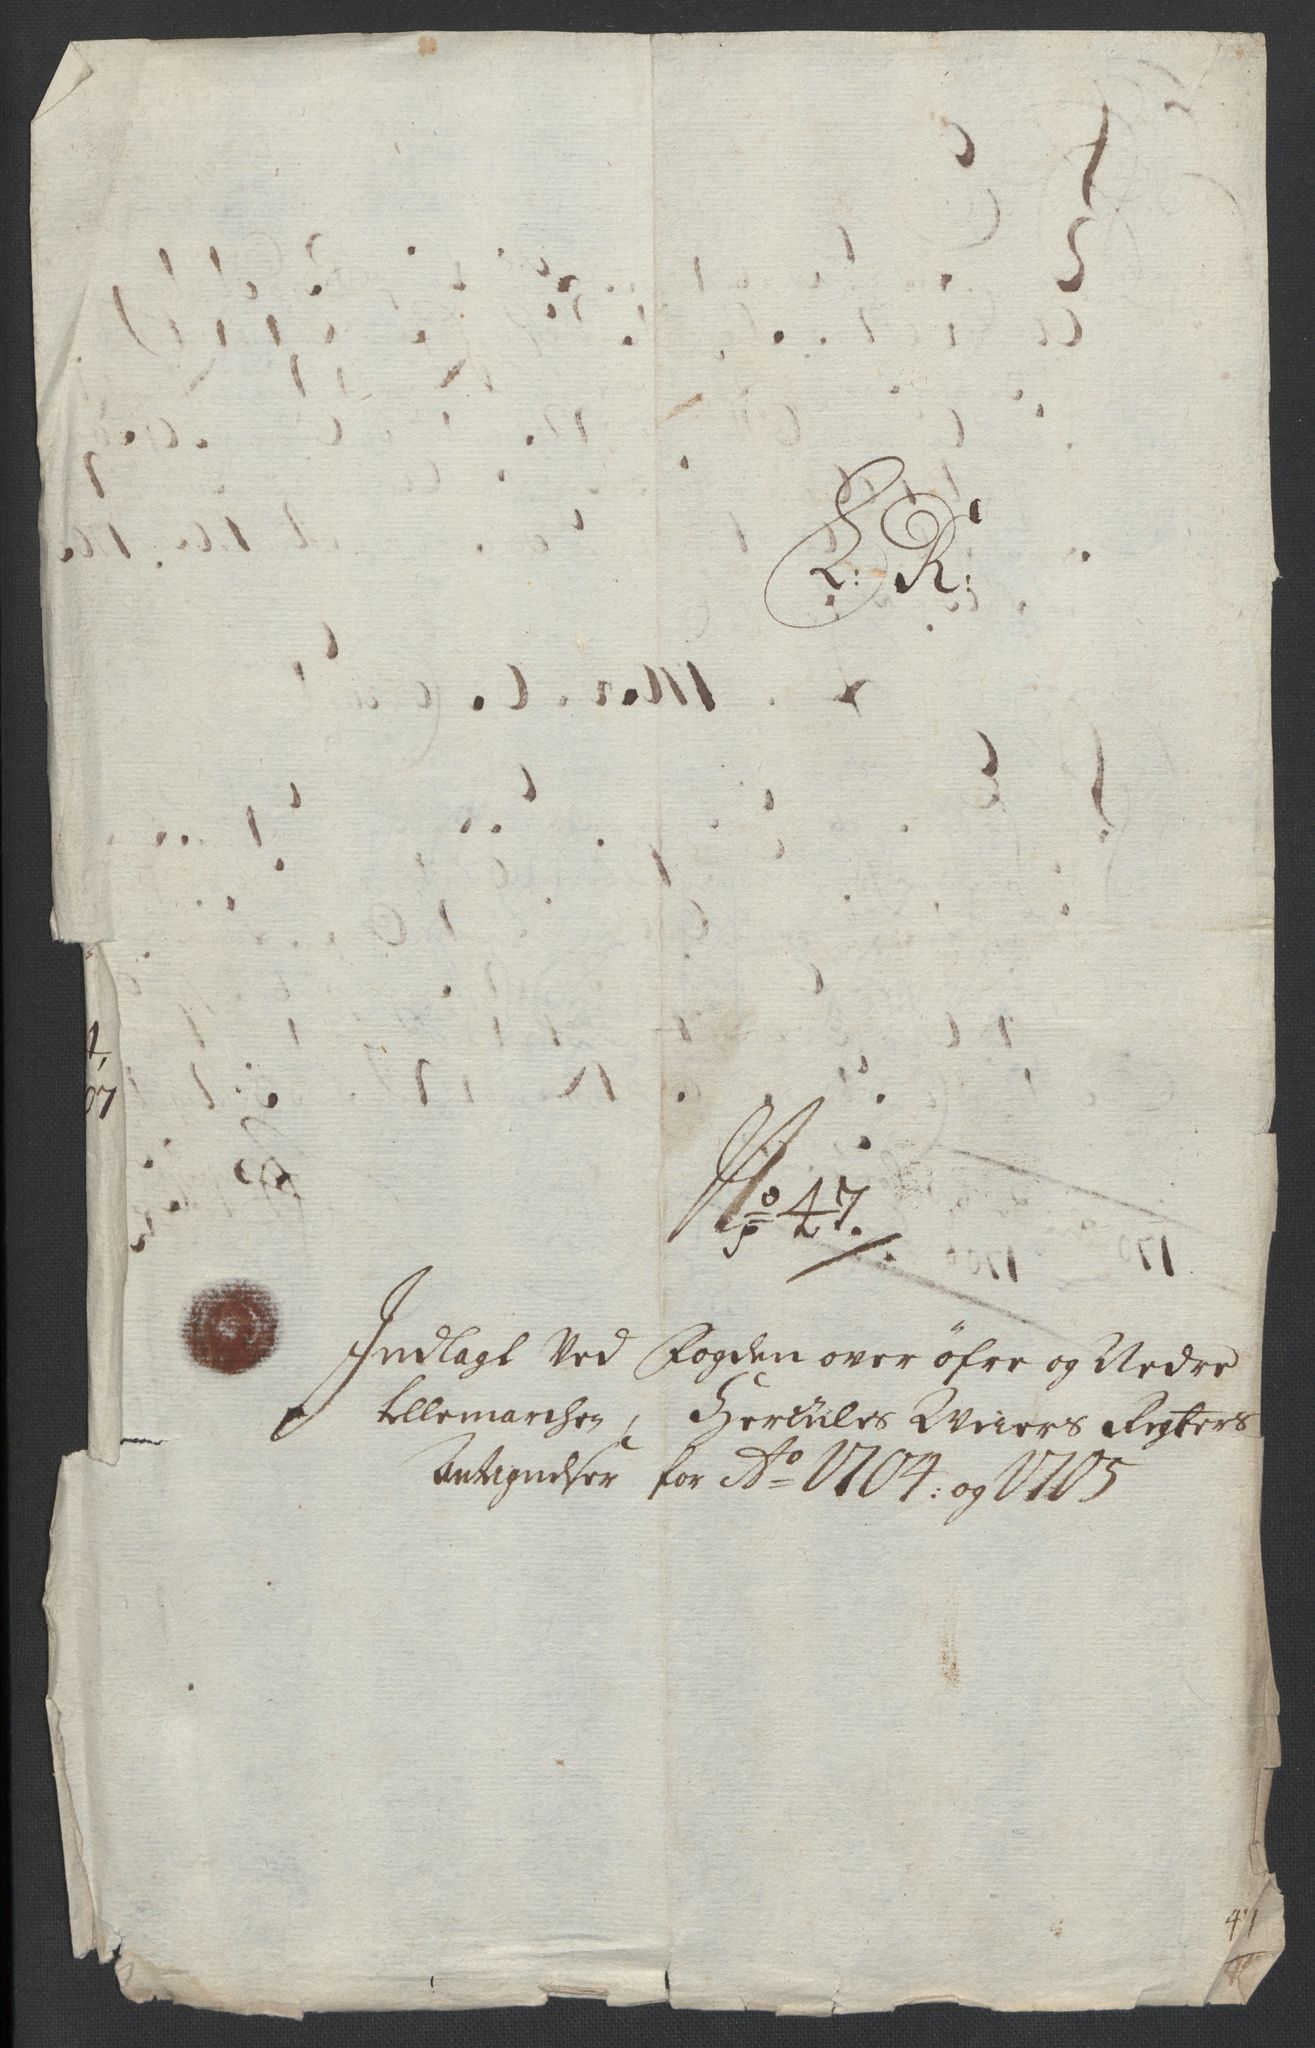 L: R:
No 47.
Indlagt Ved Fogden over öfre og Nedre
tellemarchen, Hercules Weiers Regters
Antegnelser for Ao 1704: og 1705
07
47